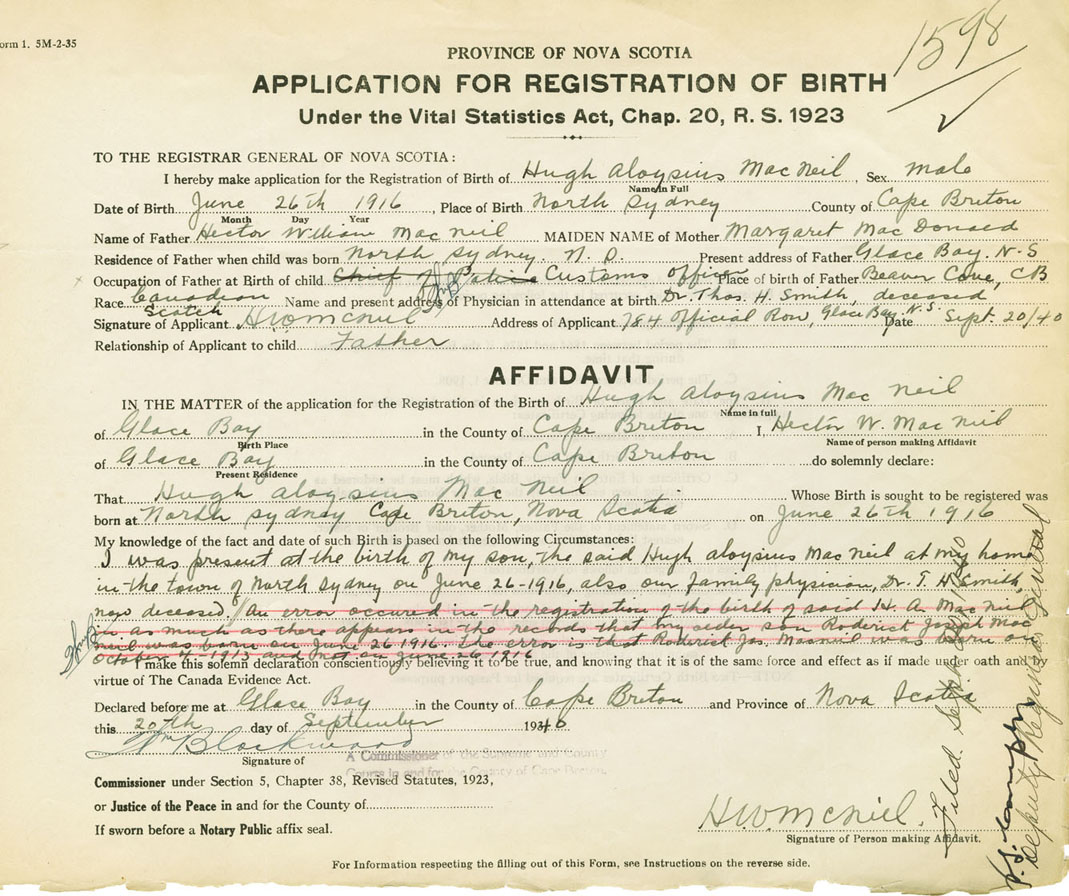 orm 1. 5M-2-35
1598
PROVINCE OF NOVA SCOTIA
APPLICATION FOR REGISTRATION OF BIRTH
Under the Vital Statistics Act, Chap. 20, R. S. 1923
TO THE REGISTRAR GENERAL OF NOVA SCOTIA:
I hereby make application for the Registration of Birth of Hugh Aloysius MacNeil, Sex male
Name in Full
Date of Birth June 26th 1916, Place of Birth North Sydney County of Cape Breton
Month Day Year
Name of Father Hector William Mac neil MAIDEN NAME of Mother Margaret Mac Donald
Residence of Father when child was born North Sydney. N. S. Present address of Father Glace Bay. N-S
Occupation of Father at Birth of child Chief of Police Customs officer Place of birth of Father Beaver Cove, CB
Race Canadian Name and present address of Physician in attendance at birth Dr. Thos. H. Smith, deceased
Scotch
Signature of Applicant H.W. McNiel Address of Applicant 784 Official Row, Glace Bay N.S. Date Sept. 20/40
Relationship of Applicant to child Father
AFFIDAVIT
IN THE MATTER of the application for the Registration of the Birth of Hugh Aloysius Mac Neil
Name in full
of Glace Bay in the County of Cape Breton I, Hector W. Mac Neil
Birth Place Name of person making Affidavit
of Glace Bay in the County of Cape Breton do solemnly declare:
Present Residence
That Hugh Aloysius Mac Neil Whose Birth is sought to be registered was
born at North Sydney Cape Breton, Nova Scotia on June 26th 1916
My knowledge of the fact and date of such Birth is based on the following Circumstances:
I was present at the birth of my son, the said Hugh Aloysius Mac Neil at my home
in the town of North Sydney on June 26-1916, also our family physician, Dr. T. H. Smith,
now deceased. An error occured in the registration of the birth of said H. A. Mac Neil
in as much as there appears in the records that my older son Roderick Joseph Mac
Neil was born on June 26 1916. The error is that Roderick Jos. Macneil was born on
October 4-1913 and not on June 26 1916
I make this solemn declaration conscientiously believing it to be true, and knowing that it is of the same force and effect as if made under oath and by
virtue of The Canada Evidence Act.
Declared before me at Glace Bay in the County of Cape Breton and Province of Nova Scotia
this 20th day of September 1940
Wm Blackwood
Signature of
A Commissioner of the Supreme and County
Court in and for the County of Cape Breton.
Commissioner under Section 5, Chapter 38, Revised Statutes, 1923,
or Justice of the Peace in and for the County of
If sworn before a Notary Public affix seal.
H.W. McNiel.
Signature of Person making Affidavit.
For Information respecting the filling out of this Form, see Instructions on the reverse side.
Filed. Sept
Deputy Registrar General